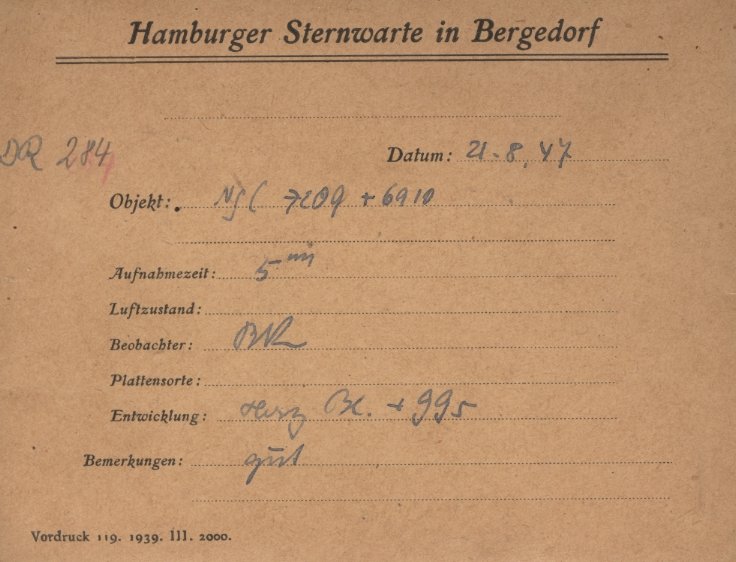 Hamburger Sternwarte in Bergedorf
DR 284
Datum: 21.8.47
Objekt: NGC 7209 + 6910
Aufnahmezeit: 5 min
Luftzustand:
Beobachter: BR
Plattensorte:
Entwicklung: + 995
Bemerkungen: gut
Vordruck 119. 1939. III. 2000.